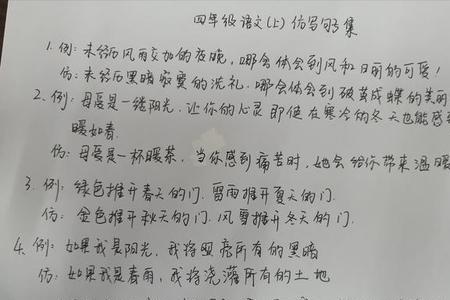 四年级语文(上)仿写句子集
1. 例:未经历风雨交加的夜晚,哪会体会到风和日丽的可爱!
仿:未经历黑暗寂寞的洗礼,哪会体会到破茧成蝶的美丽
2. 例:母爱是一缕阳光,让你的心灵即使在寒冷的冬天也能感
暖如春.
仿:母爱是一杯暖茶,当你感到痛苦时,她会给你带来温暖
3. 例:绿色推开春天的门.雷雨推开夏天的门.
仿:金色推开秋天的门.风雪推开冬天的门.
4. 例:如果我是阳光,我将照亮所有的黑暗
仿:如果我是春雨,我将浇灌所有的土地